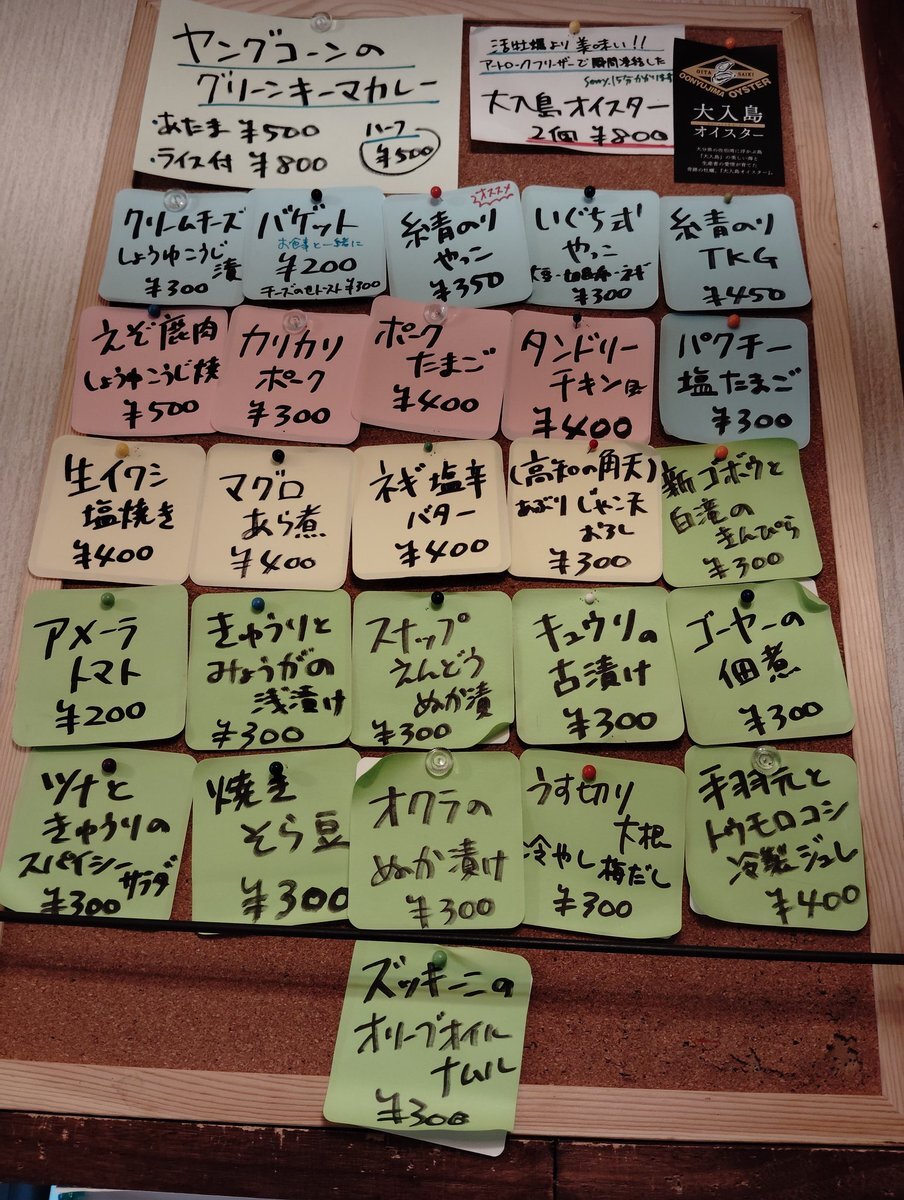 ヤングコーンの
グリーンキーマカレー
・あたま ¥500
・ライス付 ¥800
ハーフ
¥500
活牡蠣より美味い!!
アートロックフリーザーで瞬間凍結した
Sorry.15分かかります
大入島オイスター
2個 ¥800
OITA SAIKI
OONYUJIMA OYSTER
大入島
オイスター
大分県の佐伯湾に浮かぶ島
「大入島」の美しい海と
生産者の愛情が育てた
奇跡の牡蠣、『大入島オイスター』
クリームチーズ
しょうゆこうじ
漬
¥300
バゲット
お食事と一緒に
¥200
チーズのせトースト¥300
オススメ
糸青のり
やっこ
¥350
いぐち式
やっこ
¥300
糸青のり
TKG
¥450
えぞ鹿肉
しょうゆこうじ焼
¥500
カリカリ
ポーク
¥300
ポーク
たまご
¥400
タンドリー
チキン風
¥400
パクチー
塩たまご
¥300
生イワシ
塩焼き
¥400
マグロ
あら煮
¥400
ネギ塩辛
バター
¥400
(高知の角天)
あぶりじゃこ天
おろし
¥300
新ゴボウと
白滝の
きんぴら
¥300
アメーラ
トマト
¥200
きゅうりと
みょうがの
浅漬け
¥300
スナップ
えんどう
ぬか漬
¥300
キュウリの
古漬け
¥300
ゴーヤーの
佃煮
¥300
ツナと
きゅうりの
スパイシー
サラダ
¥300
焼き
そら豆
¥300
オクラの
ぬか漬け
¥300
うす切り
大根
冷やし梅だし
¥300
手羽元と
トウモロコシ
冷製ジュレ
¥400
ズッキーニの
オリーブオイル
ナムル
¥300